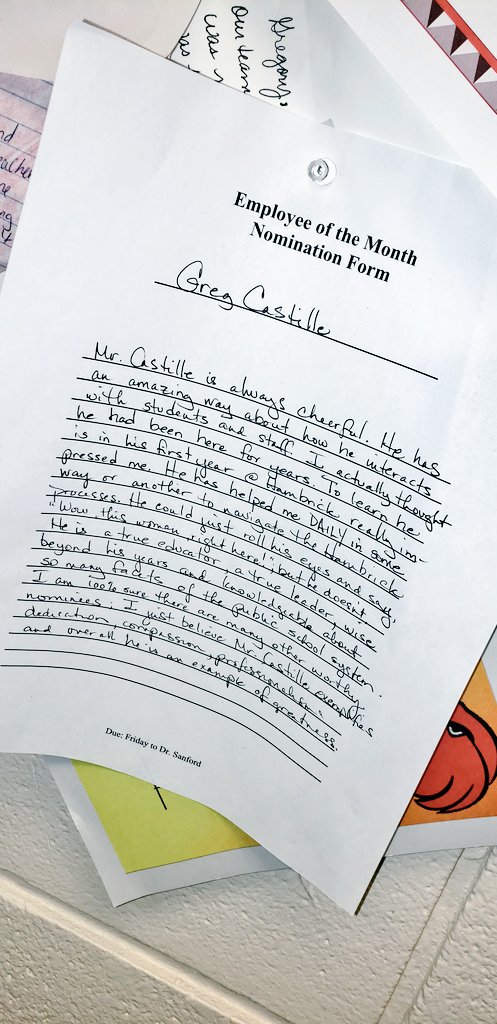 Gregory,
our team
was
as
nd
eache
ne
ng
Employee of the Month
Nomination Form
Greg Castille
Mr. Castille is always cheerful. He has
an amazing way about how he interacts
with students and staff. I actually thought
he had been here for years. To learn he
is in his first year @ Hambrick really im-
pressed me. He has helped me DAILY in some
way or another to navigate the Hambrick
processes. He could just roll his eyes and say,
"Wow, this woman right here!" but he doesn't.
He is a true educator, a true leader, wise
beyond his years and knowledgable about
so many facets of the public school system.
I am 100% sure there are many other worthy
nominees. I just believe Mr. Castille exemplifies
dedication, compassion, professionalism;
and overall he is an example of greatness.
Due: Friday to Dr. Sanford